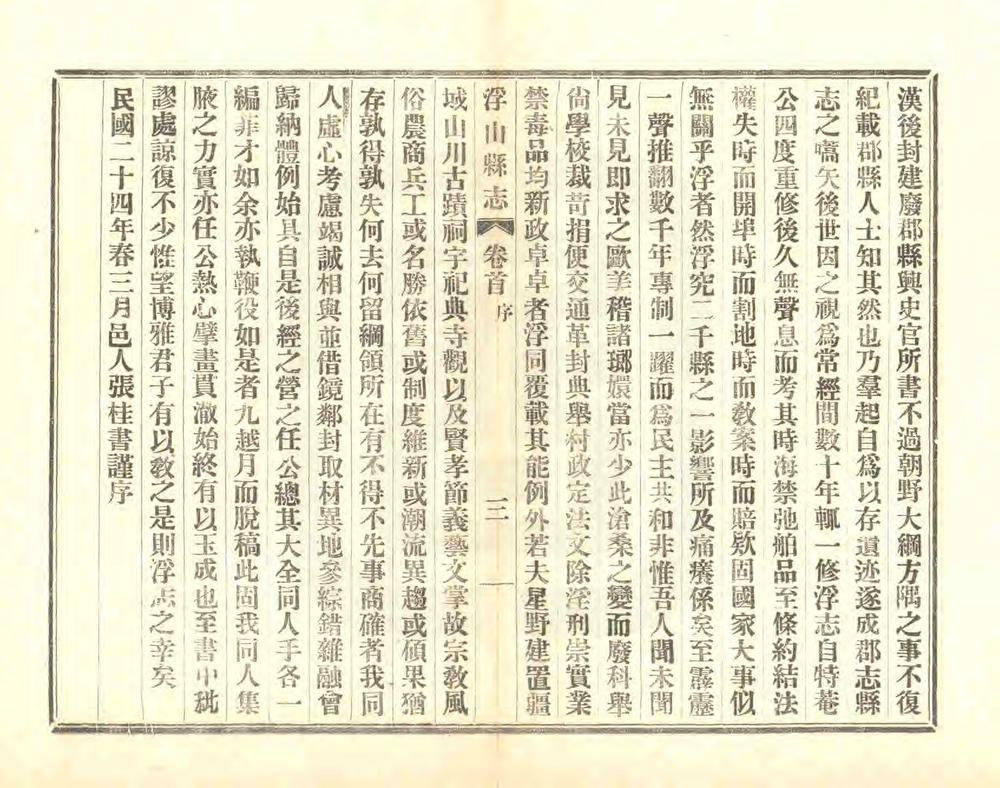 漢後封建廢郡縣興史官所書不過朝野大綱方隅之事不復
紀載郡縣人士知其然也乃羣起自爲以存遺迹遂成郡志縣
志之嚆矢後世因之視爲常經間數十年輒一修浮志自特菴
公四度重修後久無聲息而考其時海禁弛舶品至條約結法
權失時而開埠時而割地時而敎案時而賠欵固國家大事似
無關乎浮者然浮究二千縣之一影響所及痛癢係矣至霹靂
一聲推翻數千年專制一躍而爲民主共和非惟吾人聞未聞
見未見卽求之歐美稽諸瑯嬛當亦少此滄桑之變而廢科舉
尙學校裁苛捐便交通革封典舉村政定法文除淫刑崇實業
禁毒品均新政卓卓者浮同覆載其能例外若夫星野建置疆
浮山縣志 卷首 序 三
域山川古蹟祠宇祀典寺觀以及賢孝節義藝文掌故宗敎風
俗農商兵工或名勝依舊或制度維新或潮流異趨或碩果猶
存孰得孰失何去何留綱領所在有不得不先事商確者我同
人虛心考慮竭誠相與並借鏡鄰封取材異地參綜錯雜融會
歸納體例始具自是後經之營之任公總其大全同人手各一
編菲才如余亦執鞭役如是者九越月而脫稿此固我同人集
腋之力實亦任公熱心擘畫貫澈始終有以玉成也至書中紕
謬處諒復不少惟望博雅君子有以敎之是則浮志之幸矣
民國二十四年春三月邑人張桂書謹序